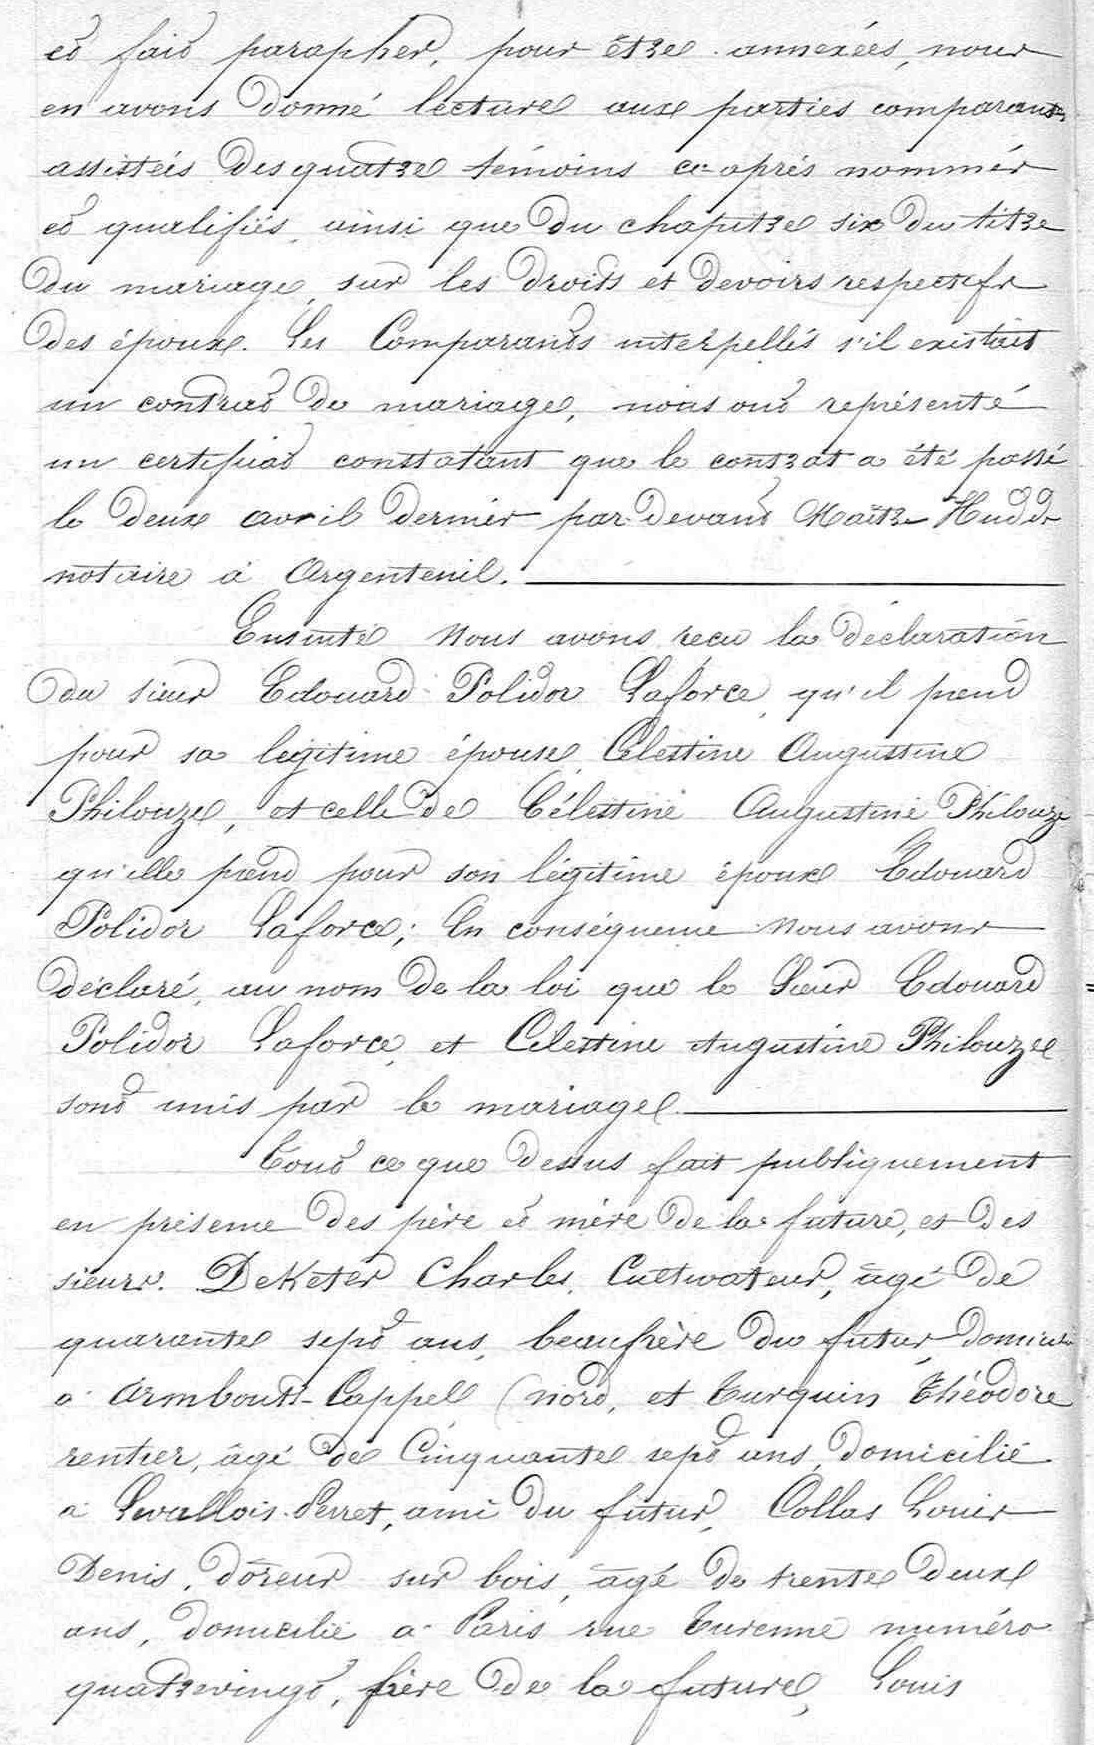 et fait parapher, pour être annexées, nous
en avons donné lecture aux parties comparantes
assistées des quatre témoins ci-après nommés
et qualifiés, ainsi que du chapitre six du titre
du mariage, sur les droits et devoirs respectifs
des époux. Les Comparants interpellés s'il existait
un contrat de mariage, nous ont représenté
un certificat constatant que le contrat a été passé
le deux avril dernier par devant Maître
notaire à Argenteuil.
Ensuite Nous avons reçu la déclaration
du sieur Edouard Polidor Laforce, qu'il prend
pour sa légitime épouse, Célestine Augustine
Philouze, et celle de Célestine Augustine Philouze
qu'elle prend pour son légitime époux Edouard
Polidor Laforce; En conséquence Nous avons
déclaré, au nom de la loi que le Sieur Edouard
Polidor Laforce, et Célestine Augustine Philouze
sont unis par le mariage.
Tout ce que dessus fait publiquement
en présence des père et mère de la future, et des
sieurs. DeKeter Charles, Cultivateur, âgé de
quarante sept ans, beaufrère du futur, domicilié
à Armbouts-Cappel (Nord, et Turquin Théodore
rentier, âgé de Cinquante sept ans, domicilié
à Levallois-Perret, ami du futur, Collas Louis
Denis, doreur sur bois, âgé de trente deux
ans, domicilié à Paris rue Turenne numéro
quatrevingt, frère de la future, Louis